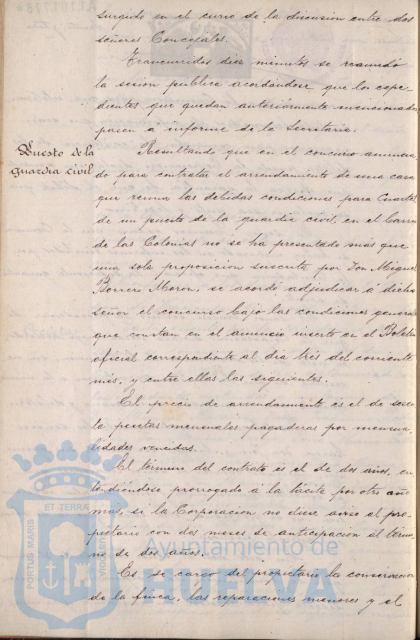 surgido en el curso de la discusion entre dos
señores Concejales.
Trascurridos diez minutos se reanudó
la sesion publica acordándose que los espe-
dientes que quedan anteriormente mencionados
pasen a informe de la Secretaria.
Puesto de la
guardia civil
Resultando que en el concurso anuncia-
do para contratar el arrendamiento de una casa
que reuna las debidas condiciones para Cuartel
de un puesto de la guardia civil, en el Barrio
de las Colonias no se ha presentado mas que
una sola proposicion suscrita por Don Miguel
Borrero Moron, se acordó adjudicar á dicho
señor el concurso bajo las condiciones generales
que constan en el anuncio inserto en el Boletin
oficial correspondiente al dia tres del corriente
mes, y entre ellas las siguientes.
El precio de arrendamiento es el de sesen-
ta pesetas mensuales pagaderas por mensua-
lidades vencidas.
El término del contrato es el de dos años, en-
tendiéndose prorrogado á la tácita por otro año
mas, si la Corporacion no diese aviso al pro-
pietario con dos meses de anticipacion al térmi-
no de dos años.
Es de cargo del propietario la conservacion
de la finca, las reparaciones menores y el
PORTUS MARIS
ET TERRÆ
Ayuntamiento de
HUELVA